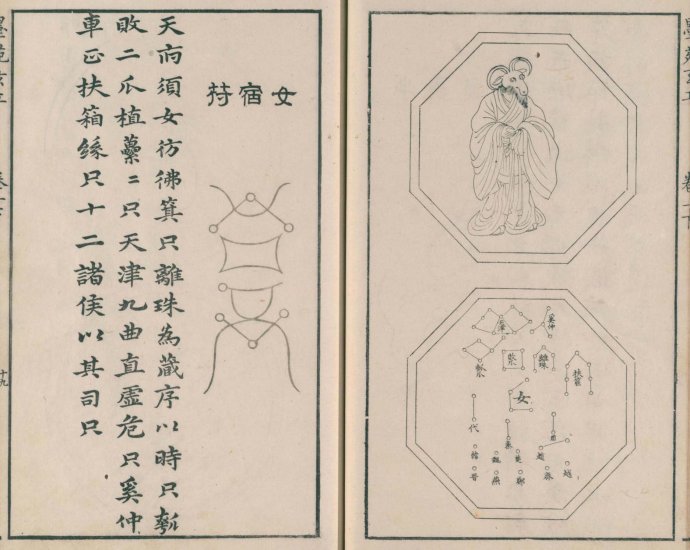 奚仲
天津
離珠
扶筐
女
代
秦
周
趙
越
韓
魏
楚
晉
燕
鄭
女宿符
天府須女彷彿箕只離珠為藏序以時只瓠
敗二瓜植蘽二只天津九曲直虛危只奚仲
車正扶箱緣只十二諸侯以其司只
十九